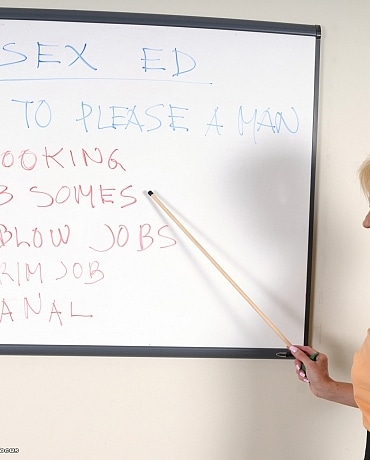 SEX ED
TO PLEASE A MAN
OOKING
3 SOMES
BLOW JOBS
RIM JOB
ANAL
ocus